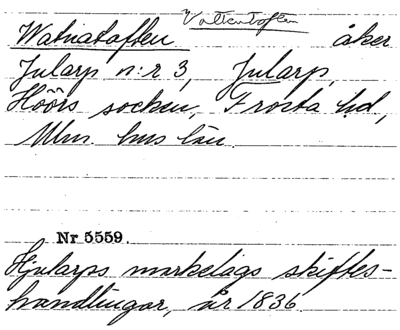 Vattentoften
Watnatoften åker
Jularp n:r 3, Jularp,
Höörs socken, Frosta hd,
Mlm. hus län.
Nr 5559.
Hjularps markelags skiftes-
handlingar, år 1836